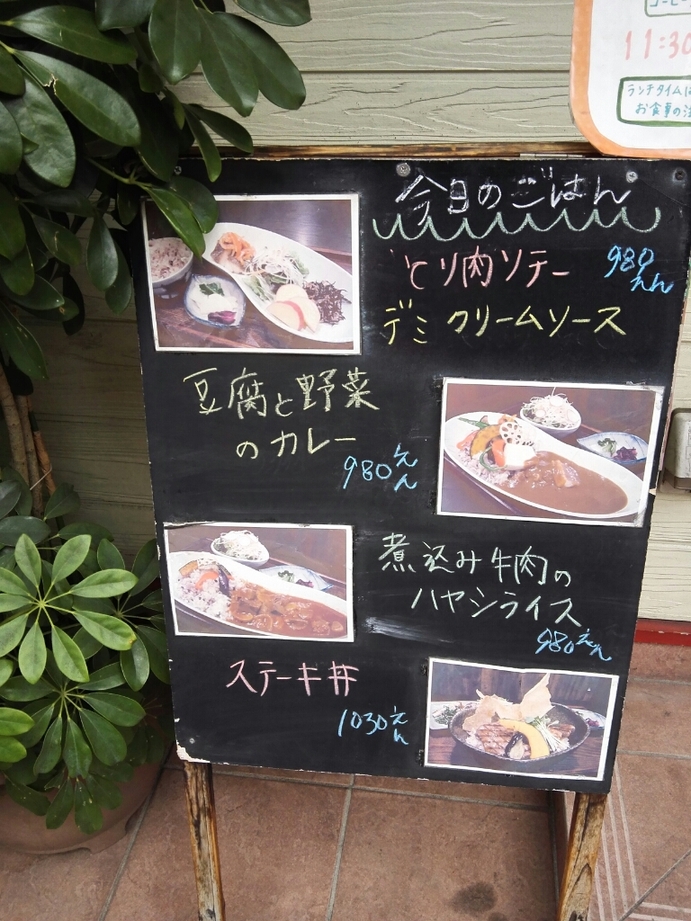 コーヒー
11:30
ランチタイムは
お食事の注
今日のごはん
とり肉ソテー 980えん
デミクリームソース
豆腐と野菜
のカレー
980えん
煮込み牛肉の
ハヤシライス
980えん
ステーキ丼
1030えん